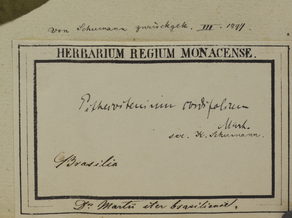 von Schumann zurückgek. III. 1897.
HERBARIUM REGIUM MONACENSE.
Pithecoctenium cordifolium
Mart.
sec. K. Schumann.
Brasilia
Dr. Martii iter brasiliense.